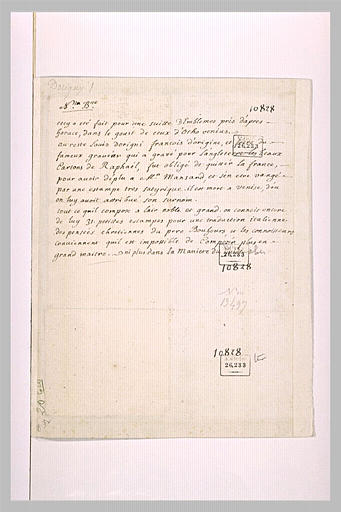 Dorigny
N.^{lle} B.^{que}
10828
cecy a esté fait pour une suitte d'Emblemes pris d'apres
horace, dans le goust de ceux d'otho venius.
au reste Louis dorigni françois d'origine, et
fameux graveur qui a gravé pour l'angleterre les beaux
Cartons de Raphaël, fut obligé de quitter la france,
pour avoir déplu a M.^r Mansard et s'en estre vangé
par une estampe tres satyrique. il est mort a Venise, d'ou
on luy avoit attribué son surnom.
tout ce qu'il compose a l'air noble et grand. on connoit encore
de luy 31 petites estampes pour une traduction italienne
des pensées chrestiennes du pere Bouhours et les connoisseurs
conviennent qu'il est impossible de Composer plus en
grand maitre. ni plus dans la Maniere du
26,233
26,233
10828
N.III
13497
10828
26,233